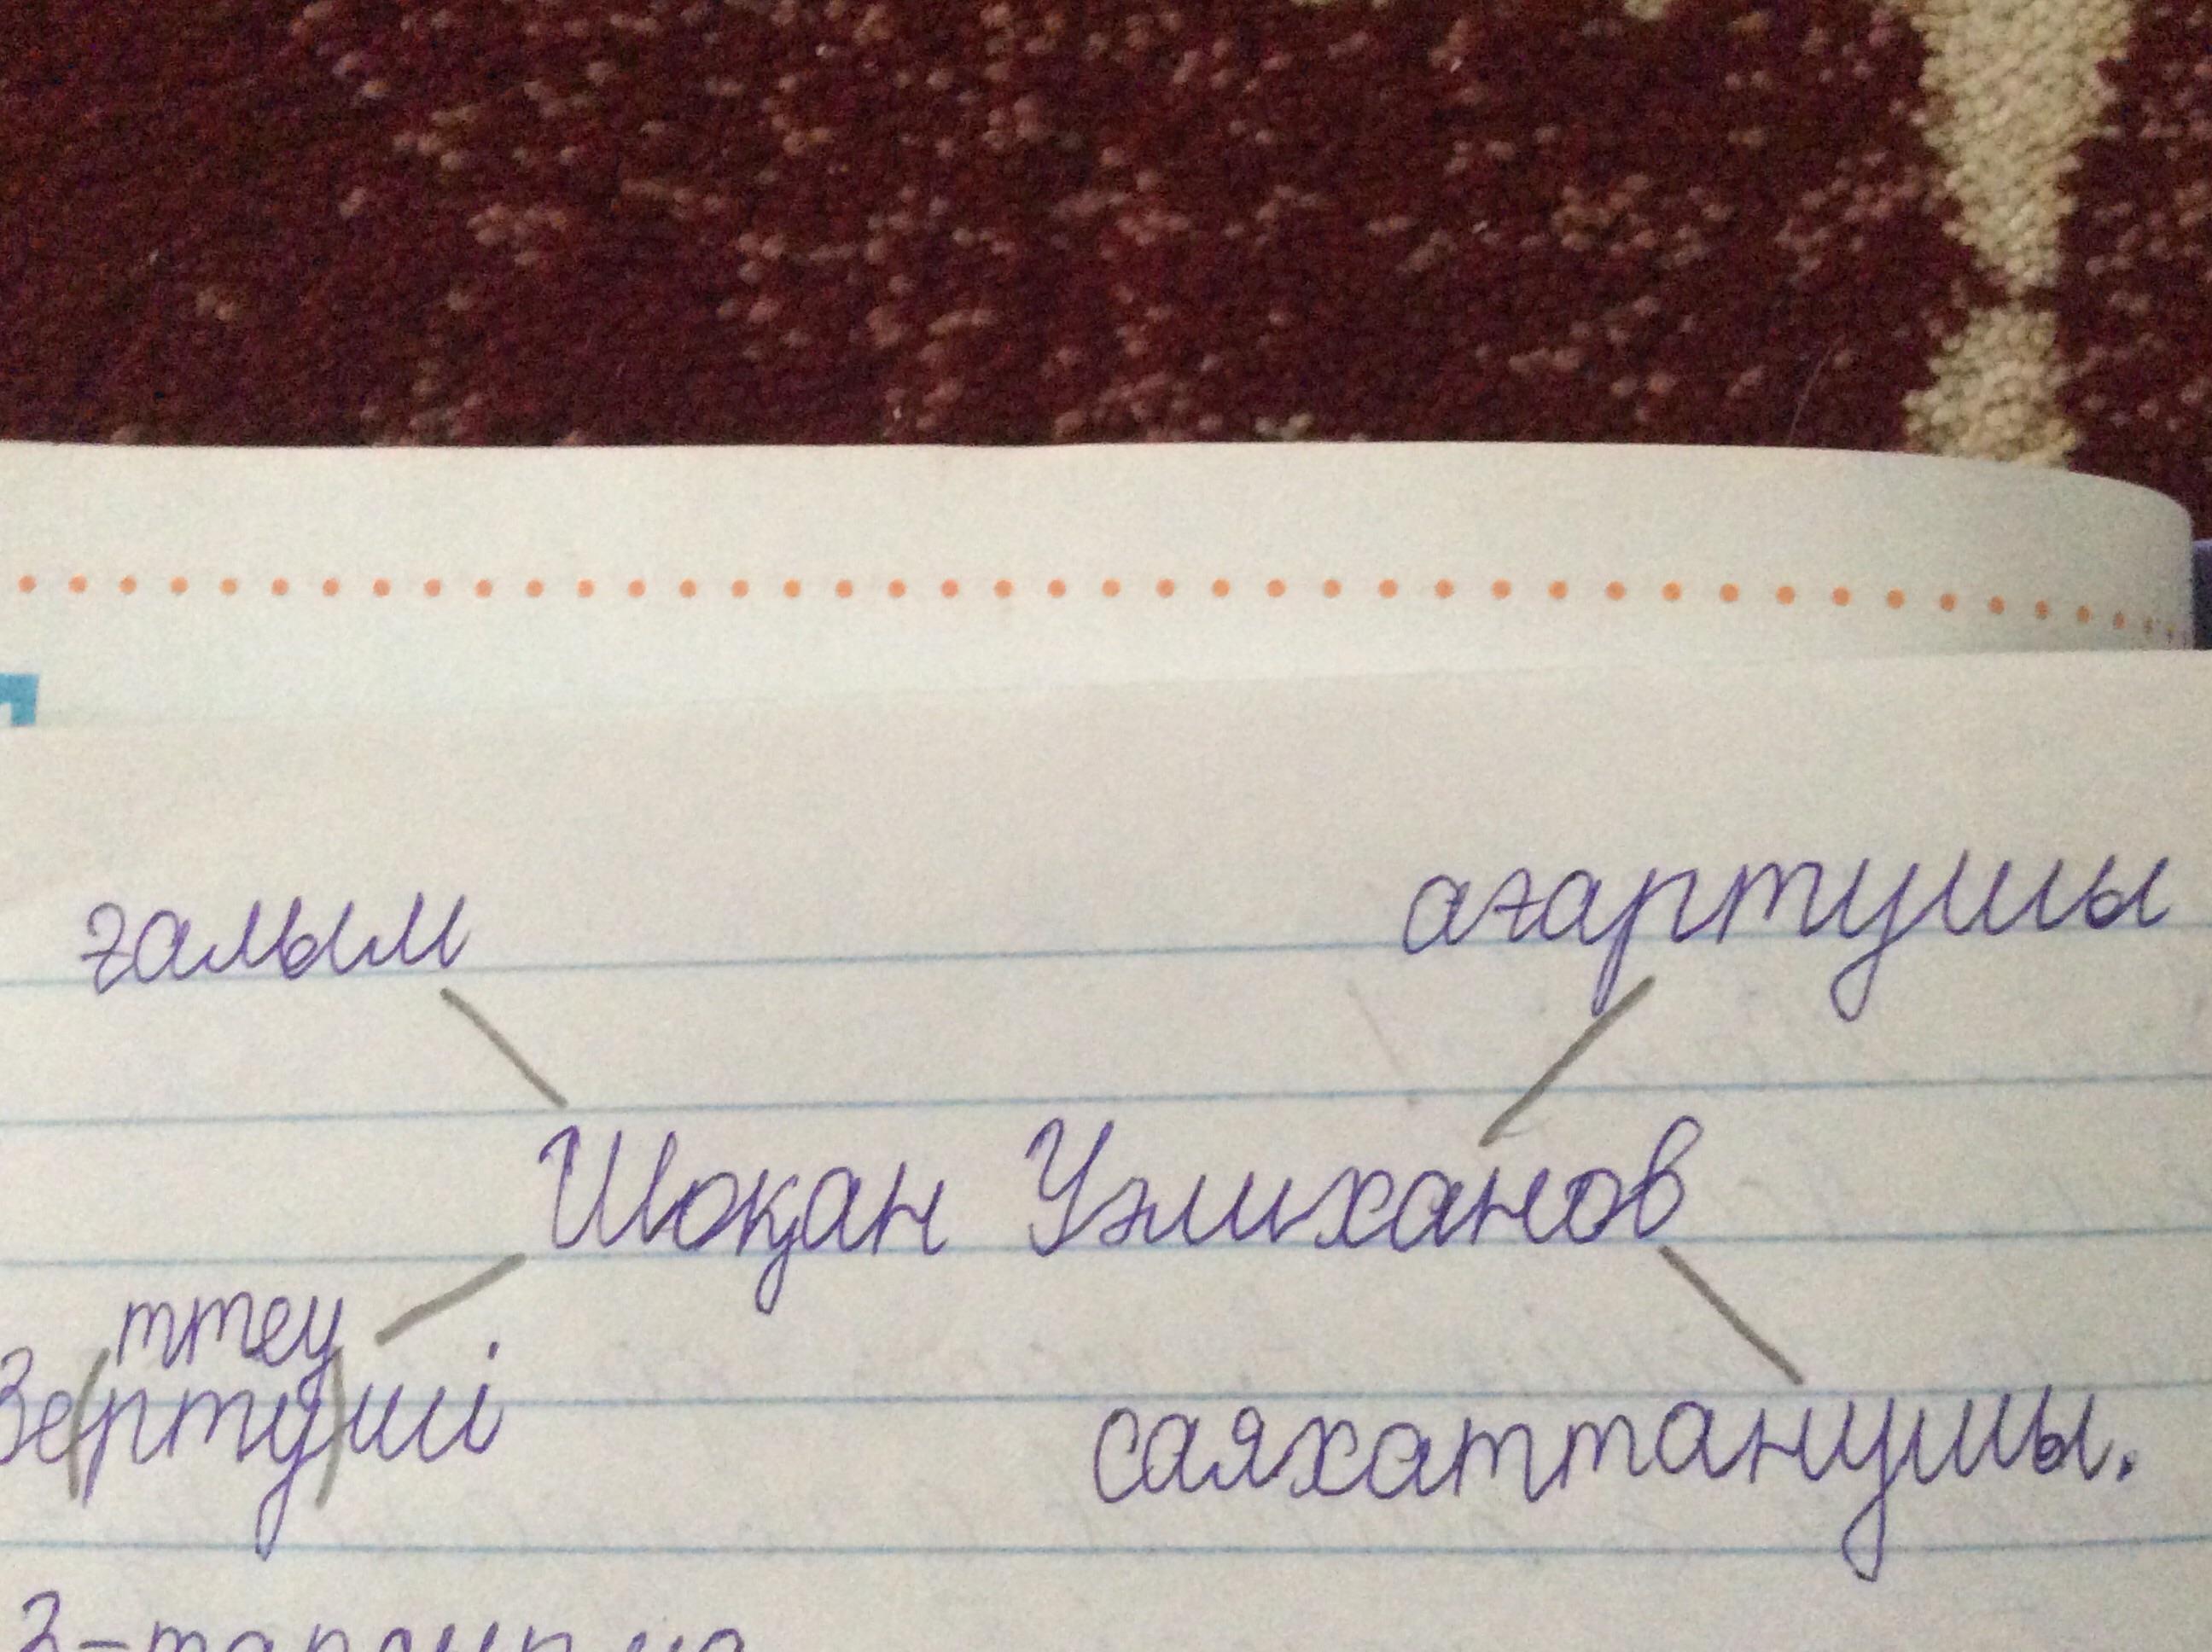 ғалым
ағартушы
Шоқан Уәлиханов
ттеу
Зе(рту)ші
саяхаттанушы.